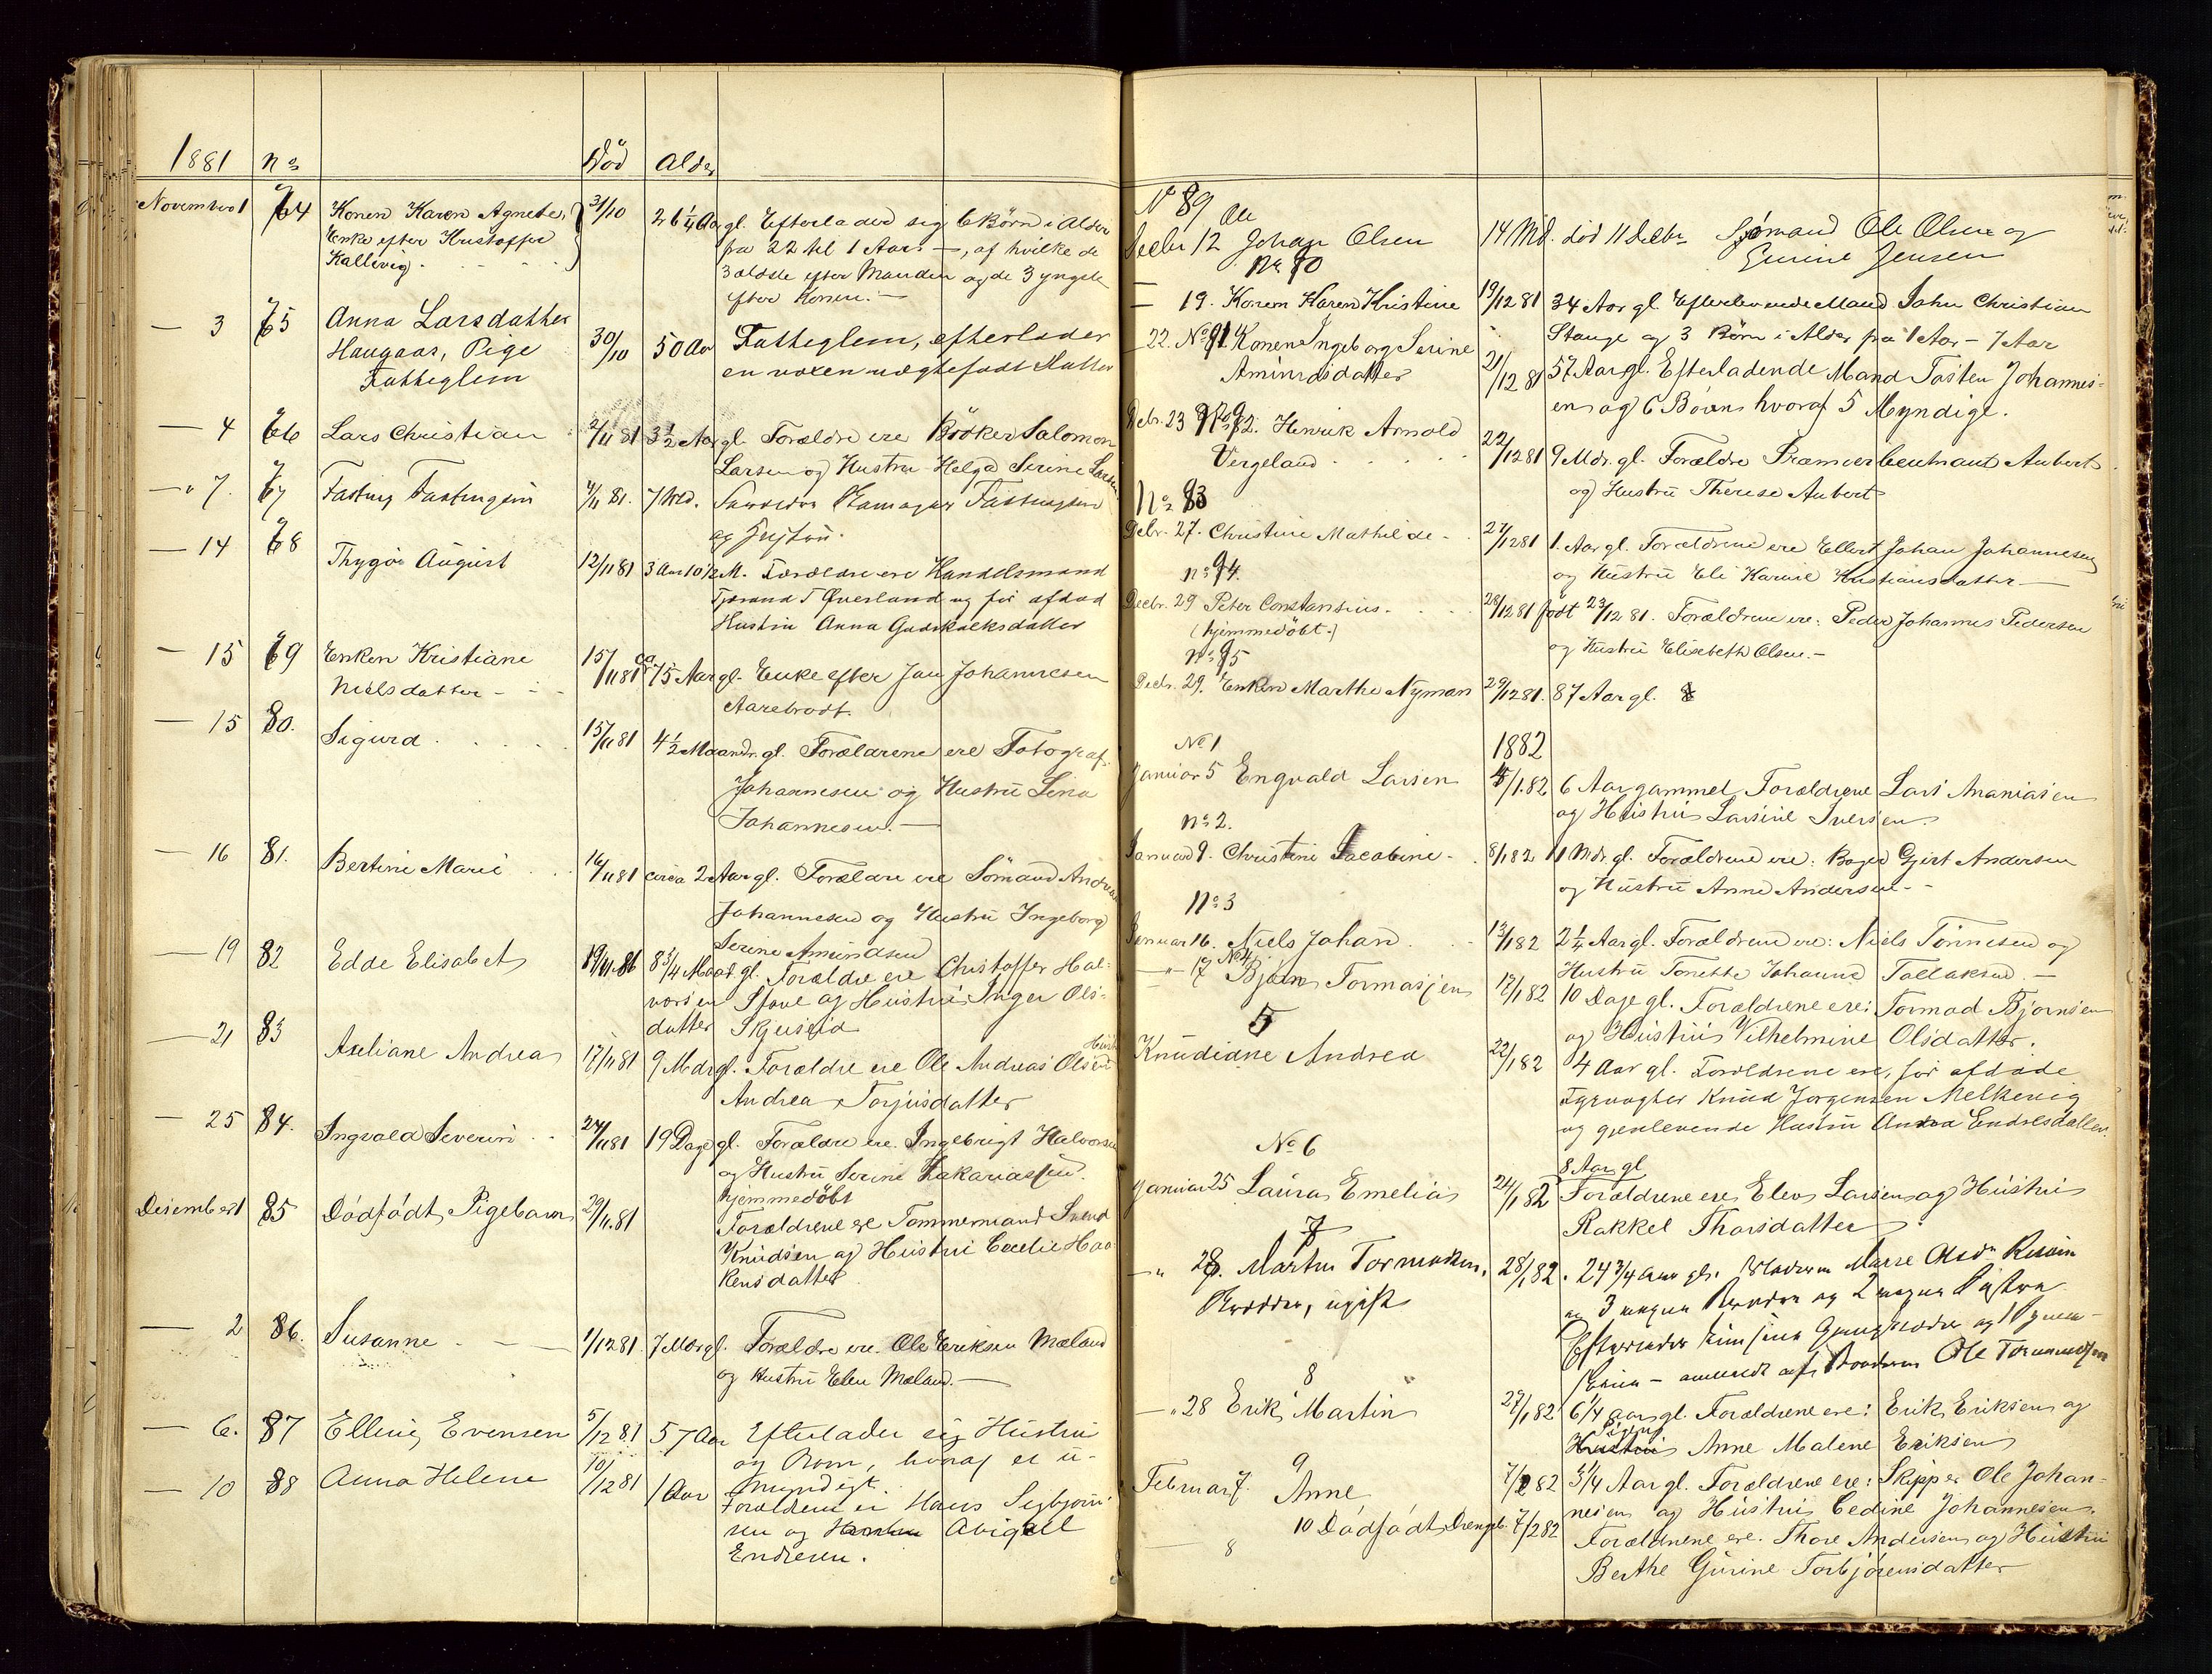 1881 No Död Alder
November 1 74 Konen Karen Agnete, 31/10 26 1/4 Aar gl. Efterlader sig 6 Børn i Alder
Enke efter Kristoffer fra 22 til 1 Aar. —, af hvilke de
Kallevig. 3 ældste efter Manden og de 3 yngste
efter Konen. —
— 3 75 Anna Larsdatter 30/10 50 Aar Fatteglem, efterlader
Haugaas, Pige en voxen uægtefødt Datter
Fatteglem
— 4 76 Lars Christian 2/11 81 3 1/2 Aar gl. Forældre ere Bödker Salomon
Larsen og Hustru Helga Serine Larsen
— " 7. 77 Fasting Fastingsen 4/11 81. 7 Md.
— 14 78 Thygo August 12/11 81 3 Aar 10 1/2 M. Forældre ere Handelsmand
Tjerand T Øverland og før afdød
Hustru Anna Gudskalksdatter
— 15 79 Enken Kristiane 15/11 81 ca 75 Aar gl. Enke efter Jan Johannesen
Nielsdatter Aarebrodt.
— 15 80. Sigurd 15/11 81 4 1/2 Maandr. gl. Forældrene ere Fotograf
Johannesen og Hustru Lina
Johannesen. —
— 16 81. Bertine Marie 16/11 81 circa 2 Aar gl. Forældre ere Sömand Andreas
Johannesen og Hustru Ingeborg
Serine Amundsen
— 19 82 Edde Elisabet 19/11 81 8 3/4 Maad. gl. Forældre ere Christoffer Hal-
vorsen Stave og Hustru Inger Ols-
datter Skjeiseid
— 21 83 Axeliane Andrea 17/11 81 9 Mdr gl. Forældre ere Ole Andreas Olsen Hustr
Andrea Torjusdatter
— 25 84. Ingvald Severin 24/11 81 19 Dage gl. Forældre ere Ingebrigt Halvorsen
og Hustru Serine Zakariassen.
hjemmedöbt
Desember 1 85 Dödfödt Pigebarn 29/11 81 Forældrene ere Tømmermand Svend
Knudsen og Hustru Cecelie Haa-
kensdatter
— 2 86. Susanne 1/12 81 7 Mdr gl. Forældre ere Ole Eriksen Mæland
og Hustru Elen Mæland. —
— 6. 87 Elling Evensen 5/12 81 57 Aar Efterlader sig Hustru
og Børn, hvoraf et u-
myndigt.
— 10 88 Anna Helene 10/12 81 1 Aar Forældrene er Hans Sigbjørn-
sen og Abigael
Endresen.
No 89 Ole
Decbr 12 Johan Olsen 14 Md. död 11 Decbr Sjømand Ole Olsen og
Gurine Jensen
No 90
— 19. Konen Karen Kristine 19/12 81 34 Aar gl. Efterlevende Mand John Christian
Stange og 3 Børn i Alder fra 1 Aar - 7 Aar
22. No 91 Konen Ingeborg Serine 21/12 81 57 Aar gl. Efterladende Mand Tosten Johannes-
Amundsdatter en og 6 Börn hvoraf 5 Myndige.
Debr. 23 No 92. Henrik Arnold 22/12 81 9 Mdr. gl. Forældre Premierleutnant Aubert
Vergeland og Hustru Therese Aubert
No 93
Debr. 27. Christine Mathilde 27/12 81 1. Aar gl. Forældrene ere Ellert Johan Johannesen
og Hustru Eli Karine Kristiansdatter —
No 94.
Decbr. 29 Peter Constansius. 28/12 81 født 23/12 81. Forældrene ere: Peder Johannes Pedersen
(hjemmedöbt.) og Hustru Elisebeth Olsen. —
No 95
Decb. 29. Enken Marthe Nyman 29/12 81. 87 Aar gl.
1882
No 1
Januar 5 Engvald Larsen 4/1. 82 6 Aar gammel Forældrene Lars Ananiasen
og Hustru Larsine Iversen.
No 2.
Januar 9. Christine Jacobine 8/1 82 11 Mdr. gl. Forældrene ere: Bager Gjert Andersen
og Hustru Anne Andersen
No 3
Januar 16. Niels Johan 13/1 82 2 1/4 Aar gl. Forældrene ere: Niels Tönnesen og
Hustru Tonette Johanne Tollaksen. —
No 4
— " 17 Björn Tormasjen 17/1 82 10 Dage gl. Forældrene ere: Tormod Bjornsen
og Hustru Vilhelmine Olsdatter.
5
Knudiane Andrea 22/1 82 4 Aar gl. Forældrene ere, før afdøde
Fyrvogter Knud Jorgensen Melkevig
og gjenlevende Hustru Andrea Endresdatter.
No 6
8 Aar gl
Januar 25 Laura Emelia 24/1 82 Forældrene ere Elev Larsen og Hustru
Rakkel Thorsdatter
7
— " 28. Martin Tormodsen, 28/1 82. 24 3/4 Aar gl.
ugift og 3 Brødre og 2
Ole Tormodsen
8
— " 28 Erik Martin 27/1 82 6/4 aar gl. Forældrene ere: Erik Eriksen og
Hustru Anne Malene Eriksen
9
Februar 7. Anne 7/2 82 5/4 Aar gl. Forældrene ere: Skipper Ole Johan-
nesen og Hustru Cedine Johannesen.
8 10 Dödfödt Drengeb. 7/2 82 Forældrene ere. Thore Andersen og Hustru
Berthe Gurine Torbjörensdatter